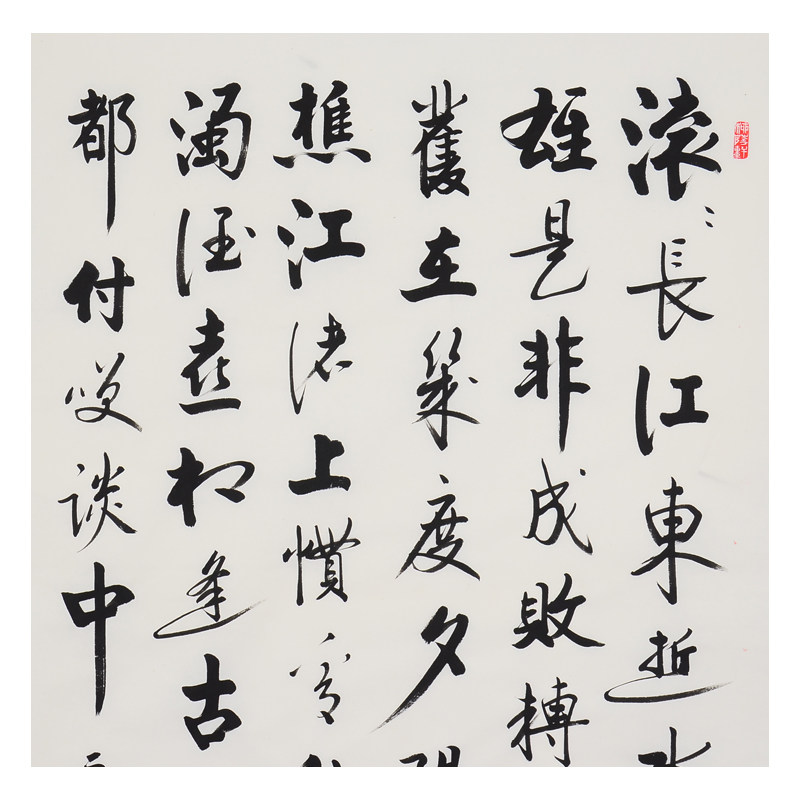 滾〻長江東逝水
雄是非成敗轉
舊在幾度夕陽
樵江渚上慣看
濁酒喜相逢古
都付咲談中